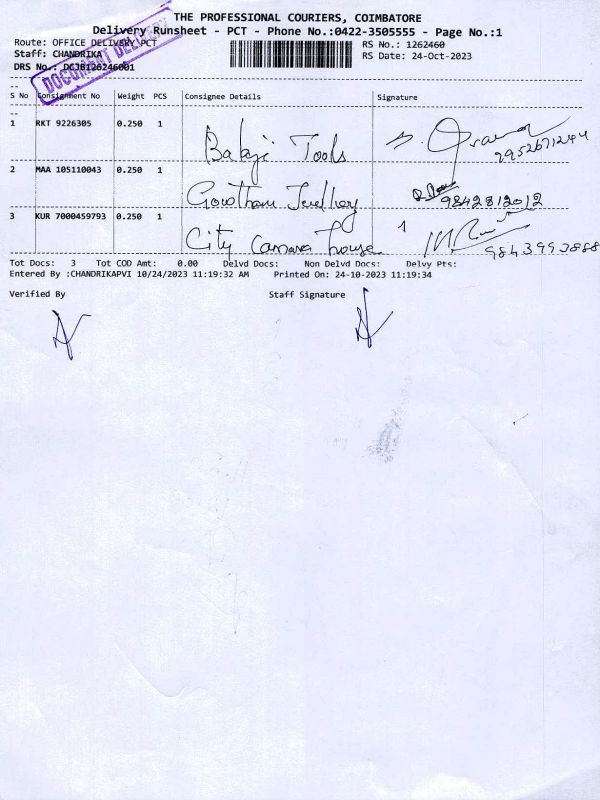 THE PROFESSIONAL COURIERS, COIMBATORE
Delivery Runsheet - PCT - Phone No.:0422-3505555 - Page No.:1
Route: OFFICE DELIVERY PCT
RS No.: 1262460
Staff: CHANDRIKA
RS Date: 24-Oct-2023
DRS No.:
DOCUMENT DELIVERY
S No Consignment No Weight PCS Consignee Details Signature
1 RKT 9226305 0.250 1 Balaji Tools
2 MAA 105110043 0.250 1 Gowtham Jewllery 9842812012
3 KUR 7000459793 0.250 1 City Camara House 9843993888
Tot Docs: 3 Tot COD Amt: 0.00 Delvd Docs: Non Delvd Docs: Delvy Pts:
Entered By :CHANDRIKAPVI 10/24/2023 11:19:32 AM Printed On: 24-10-2023 11:19:34
Verified By Staff Signature